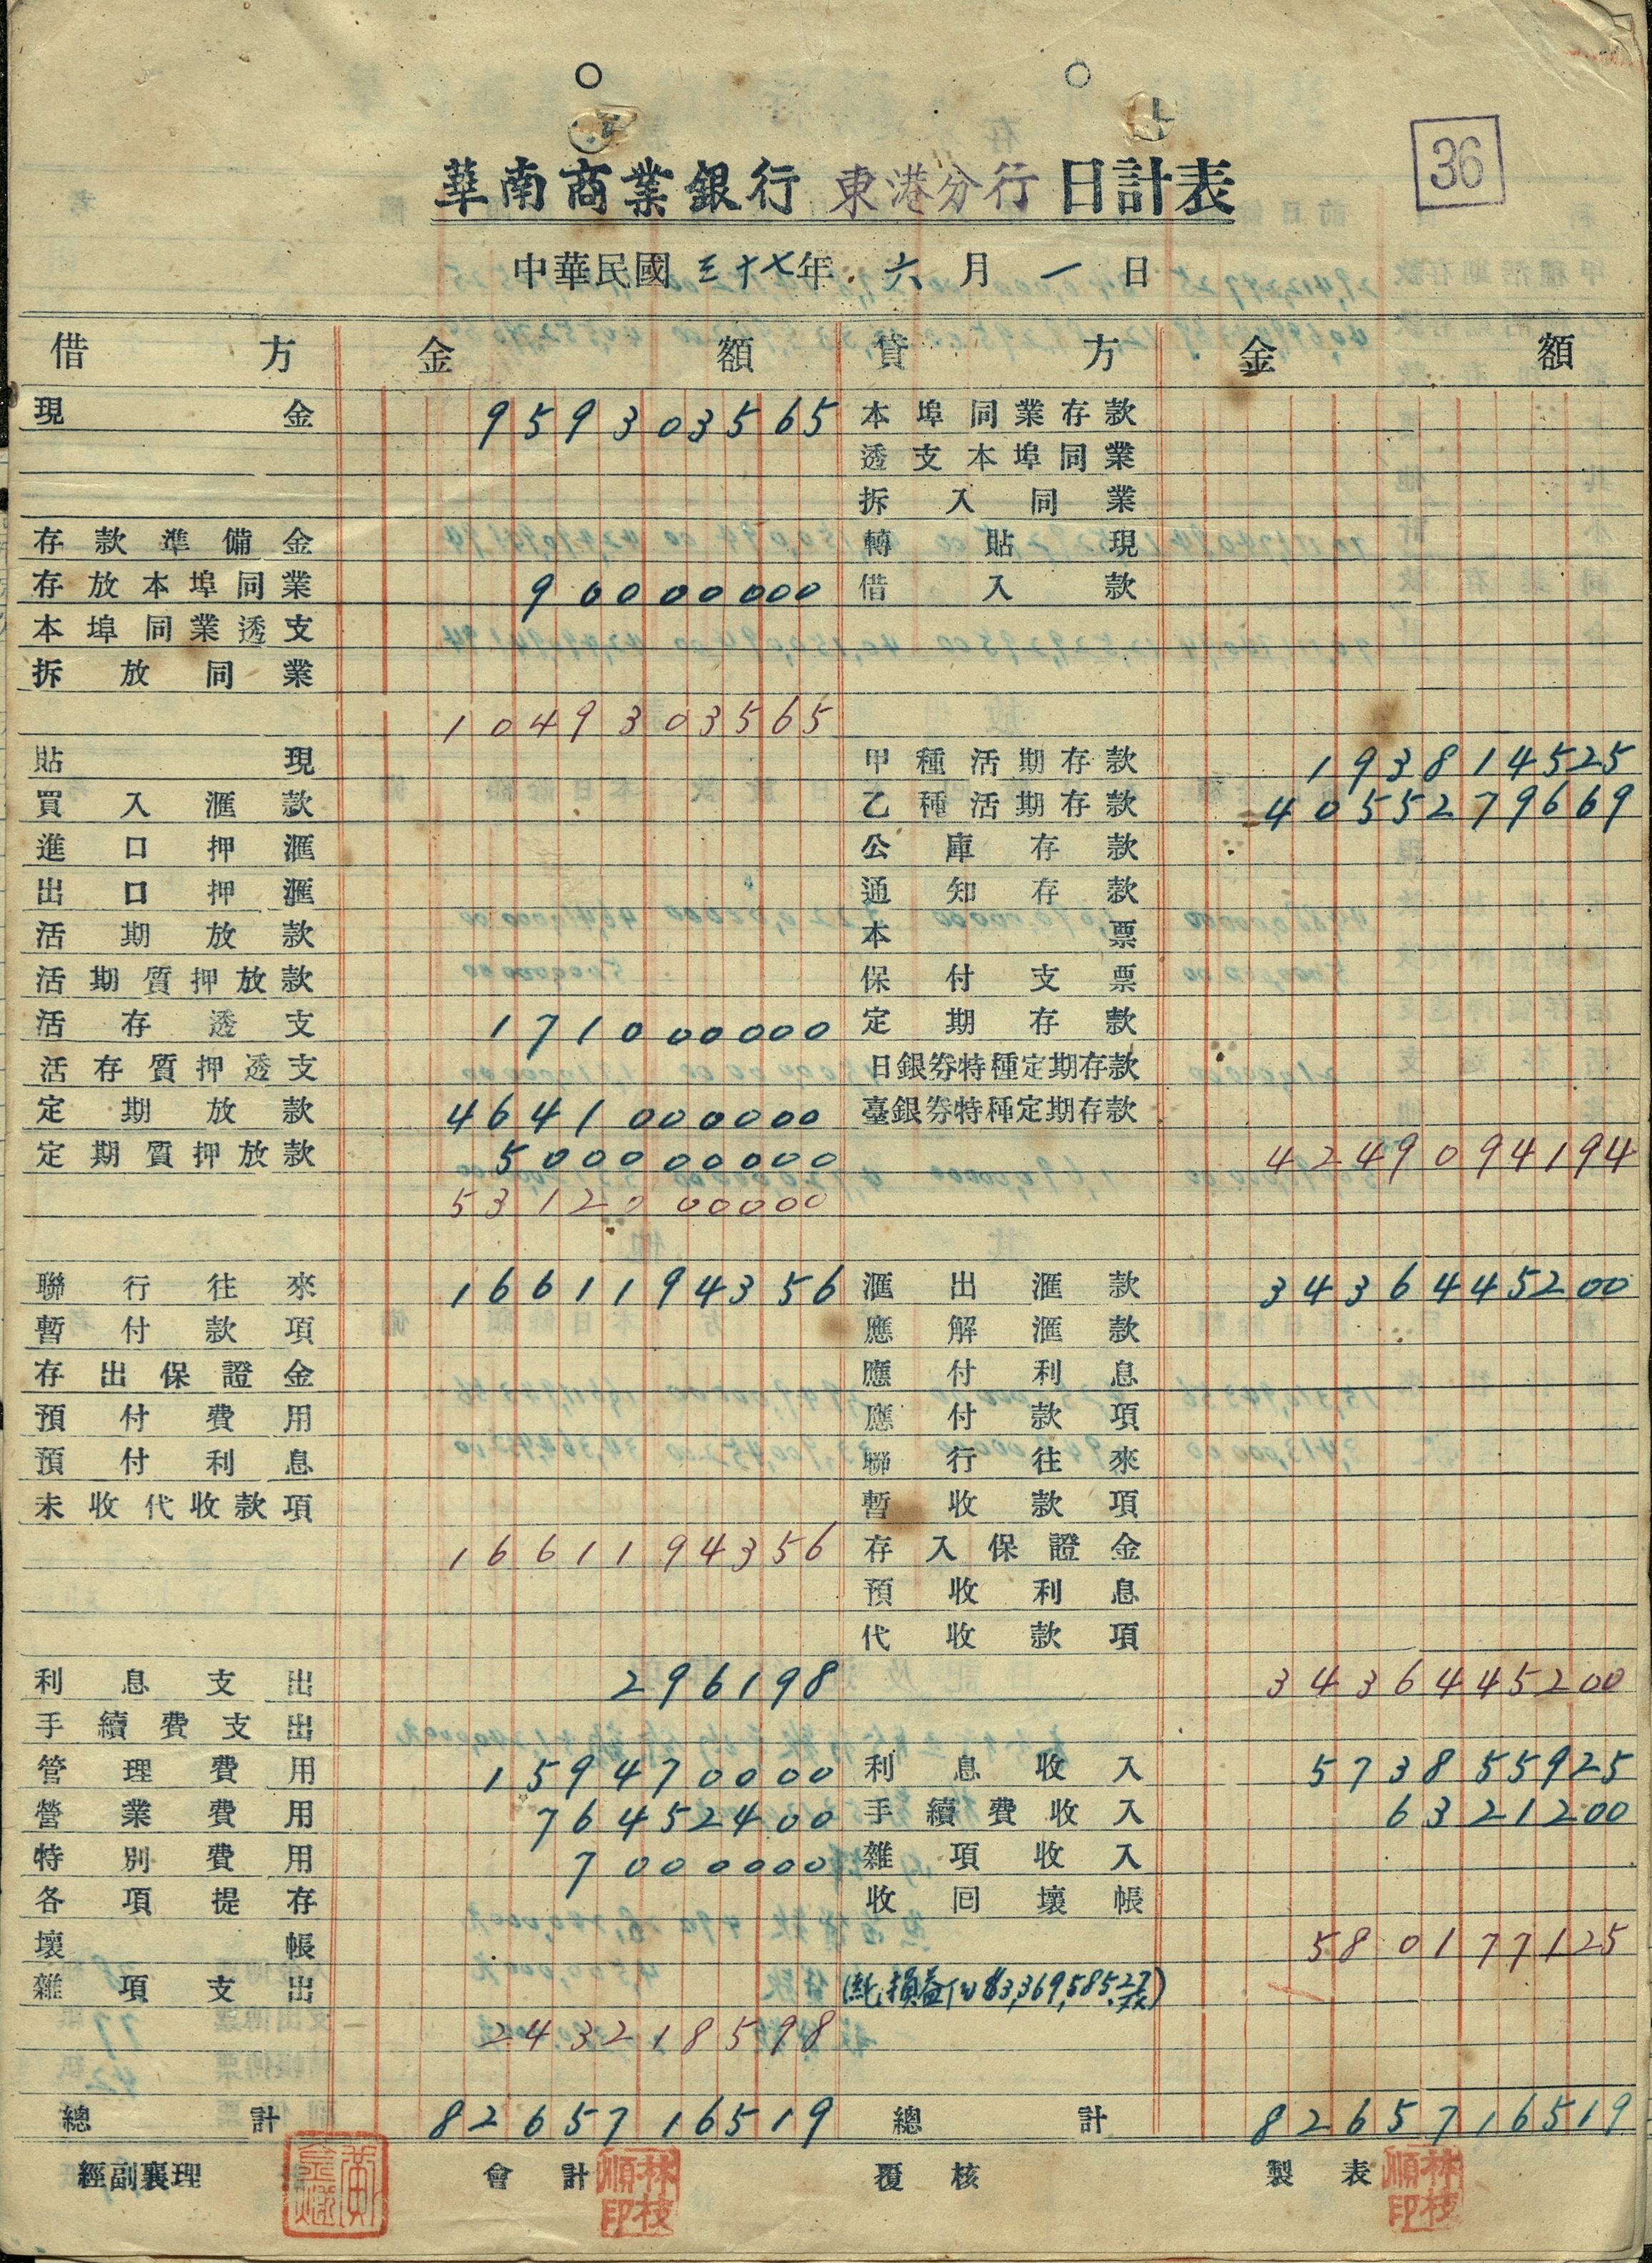 36
華南商業銀行 東港分行 日計表
中華民國 三十七年 六月 一日
借方 金額 貸方 金額
現金 959303565 本埠同業存款
透支本埠同業
拆入同業
存款準備金 轉貼現
存放本埠同業 90000000 借入款
本埠同業透支
拆放同業
1049303565
貼現 甲種活期存款 193814525
買入滙款 乙種活期存款 4055279669
進口押滙 公庫存款
出口押滙 通知存款
活期放款 本票
活期質押放款 保付支票
活存透支 171000000 定期存款
活存質押透支 日銀券特種定期存款
定期放款 4641000000 臺銀券特種定期存款
定期質押放款 500000000 4249094194
5312000000
聯行往來 1661194356 滙出滙款 3436445200
暫付款項 應解滙款
存出保證金 應付利息
預付費用 應付款項
預付利息 聯行往來
未收代收款項 暫收款項
1661194356 存入保證金
預收利息
代收款項
利息支出 296198 3436445200
手續費支出
管理費用 159470000 利息收入 573855925
營業費用 76452400 手續費收入 6321200
特別費用 7000000 雜項收入
各項提存 收回壞帳
壞帳 580177125
雜項支出 (純損益 $3,369,585.27)
243218598
總計 8265716519 總計 8265716519
經副襄理 會計 林枝順印 覆核 製表 林枝順印